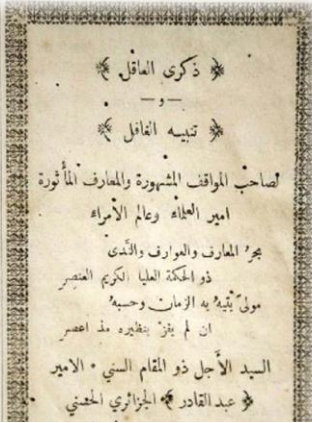 ﴿ ذكرى العاقل ﴾
— و —
﴿ تنبيه الغافل ﴾
لصاحب المواقف المشهورة والمعارف المأثورة
امير العلماء وعالم الأمراء
بحرُ المعارف والعوارف والنَّدى
ذو الحكمة العليا الكريم العنصرِ
مولىً يتيهُ به الزمان وحسبهُ
ان لم يفزْ بنظيره مذ اعصرِ
السيد الأجل ذو المقام السني ۰ الامير
﴿ عبد القادر ﴾ الجزائري الحسني